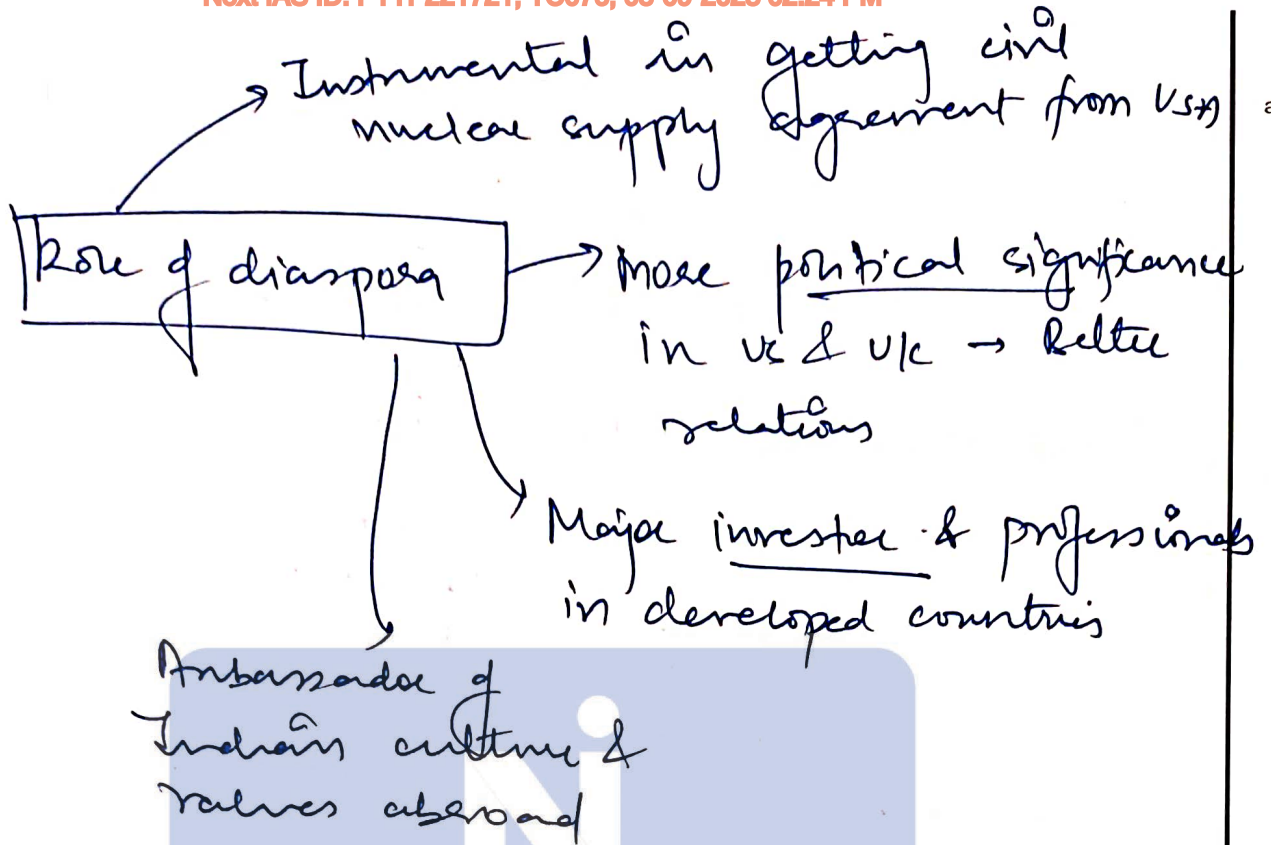 Instrumental in getting civil
nuclear supply agreement from USA
Role of diaspora
More political significance
in US & UK → Better
relations
Major investor & professionals
in developed countries
Ambassador of
Indian culture &
values abroad